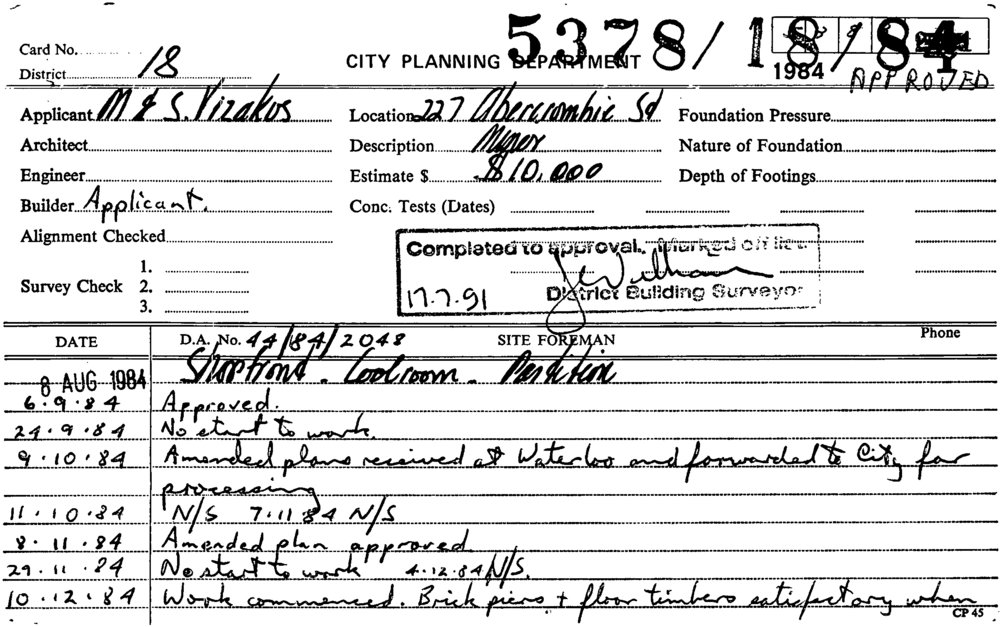 5378/18/84
Card No.
District 18
CITY PLANNING DEPARTMENT
1984 APPROVED
Applicant M & S. Vizakos
Location 227 Abercrombie St
Foundation Pressure
Architect
Description Minor
Nature of Foundation
Engineer
Estimate $ $10,000
Depth of Footings
Builder Applicant.
Conc. Tests (Dates)
Alignment Checked
Completed to approval. Marked off list.
Survey Check 1. 2. 3.
17.7.91 District Building Surveyor
DATE D.A. No. 44/84/2048 SITE FOREMAN Phone
8 AUG 1984 Shopfront. Coolroom. Partition
6.9.84 Approved.
24.9.84 No start to work.
9.10.84 Amended plans received at Waterloo and forwarded to City for
processing
11.10.84 N/S 7.11.84 N/S
8.11.84 Amended plan approved.
29.11.84 No start to work 4.12.84 N/S.
10.12.84 Work commenced. Brick piers + floor timbers satisfactory when
CP 45